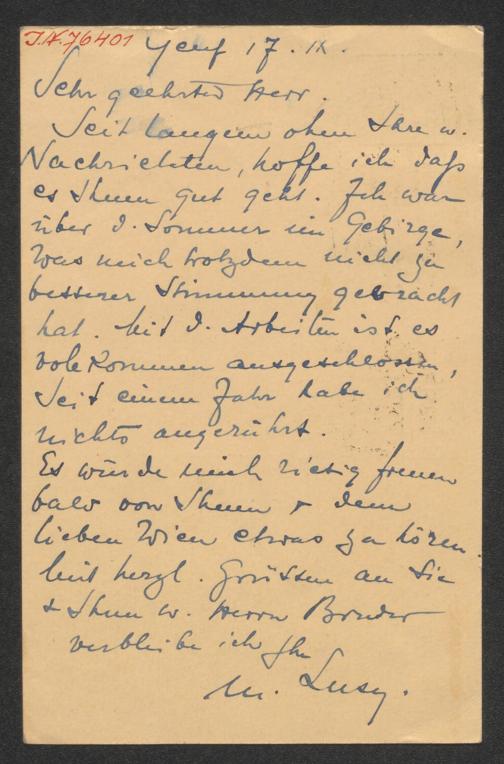 I.N. 76401
Genf 17. IX.
Sehr geehrter Herr.
Seit langem ohne Ihre w.
Nachrichten, hoffe ich daß
es Ihnen gut geht. Ich war
über d. Sommer im Gebirge,
was mich trotzdem nicht zu
besserer Stimmung gebracht
hat. Mit d. Arbeiten ist es
vollkommen ausgeschlossen,
seit einem Jahr habe ich
nichts angerührt.
Es würde mich riesig freuen
bald von Ihnen & dem
lieben Wien etwas zu hören.
Mit herzl. Grüssen an Sie
& Ihren w. Herrn Bruder
verbleibe ich Ihr
M. Lusy.